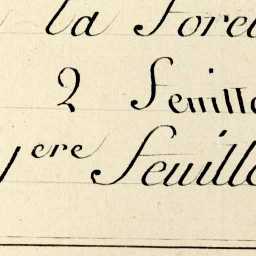 la Foret
2 Feuille
1ere Feuille